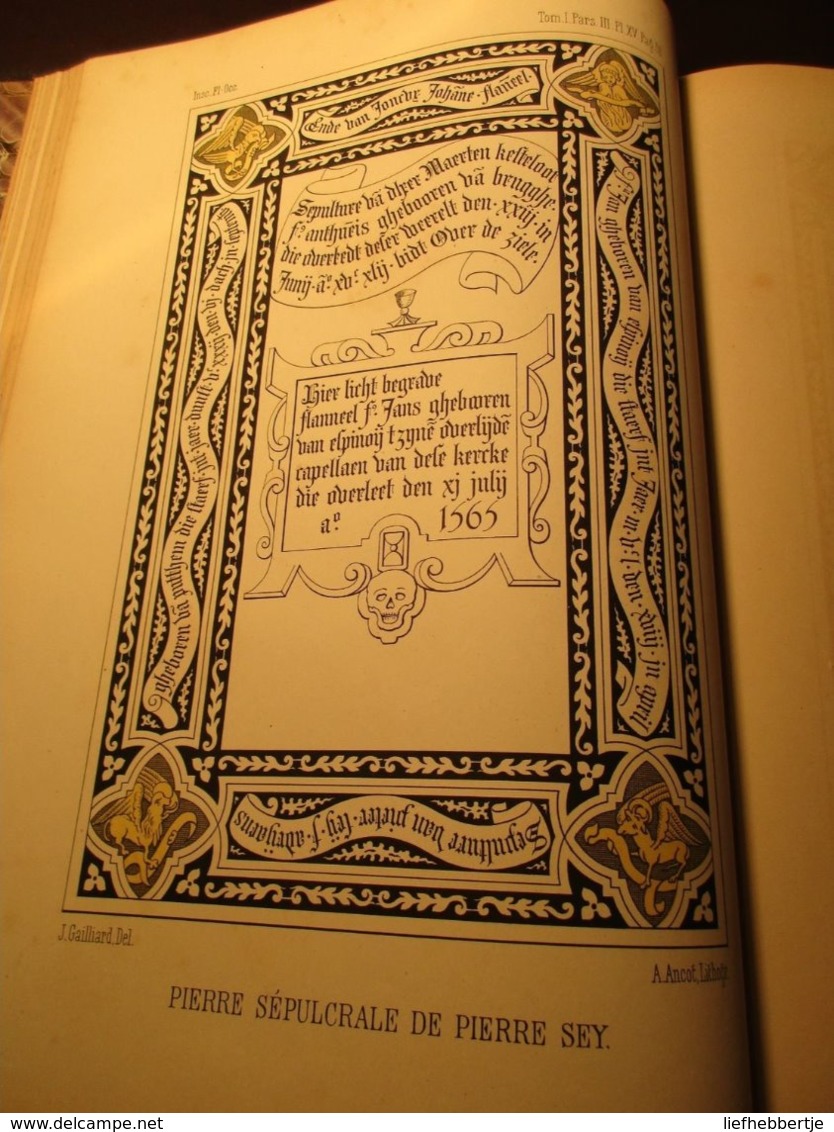 Insc. Fl. Occ.
Tom. I. Pars. III. Pl. XV. Pag.
Ende van Joncvr Johāne · flaneel ·
Sepulture vā dheer Maerten kesteloot
fᵒ anthueīs ghebooren vā brugghe
die overledt deser weerelt den · xxiij in
Junij · āᵒ xvᶜ xlij · bidt Over de ziele ·
Hier licht begrave
flanneel fᵒ Jans ghebooren
van espinoij tzynē overlijdē
capellaen van dese kercke
die overleet den xj julij
aᵒ 1565
fᵒ Jans gheboren van espinoij die staerf jnt Jaer · m · vᶜ · l · den · xviij · jn april
Sepulture van pieter · seij · f · adrijaens
gheboren vā putthem die staerf · jnt · jaer · duust · vᶜ · xxxij · den · vj · dach · jn ·
J. Gailliard, Del.
A. Ancot, Lithogr
PIERRE SÉPULCRALE DE PIERRE SEY.
www.delcampe.net
liefhebbertje